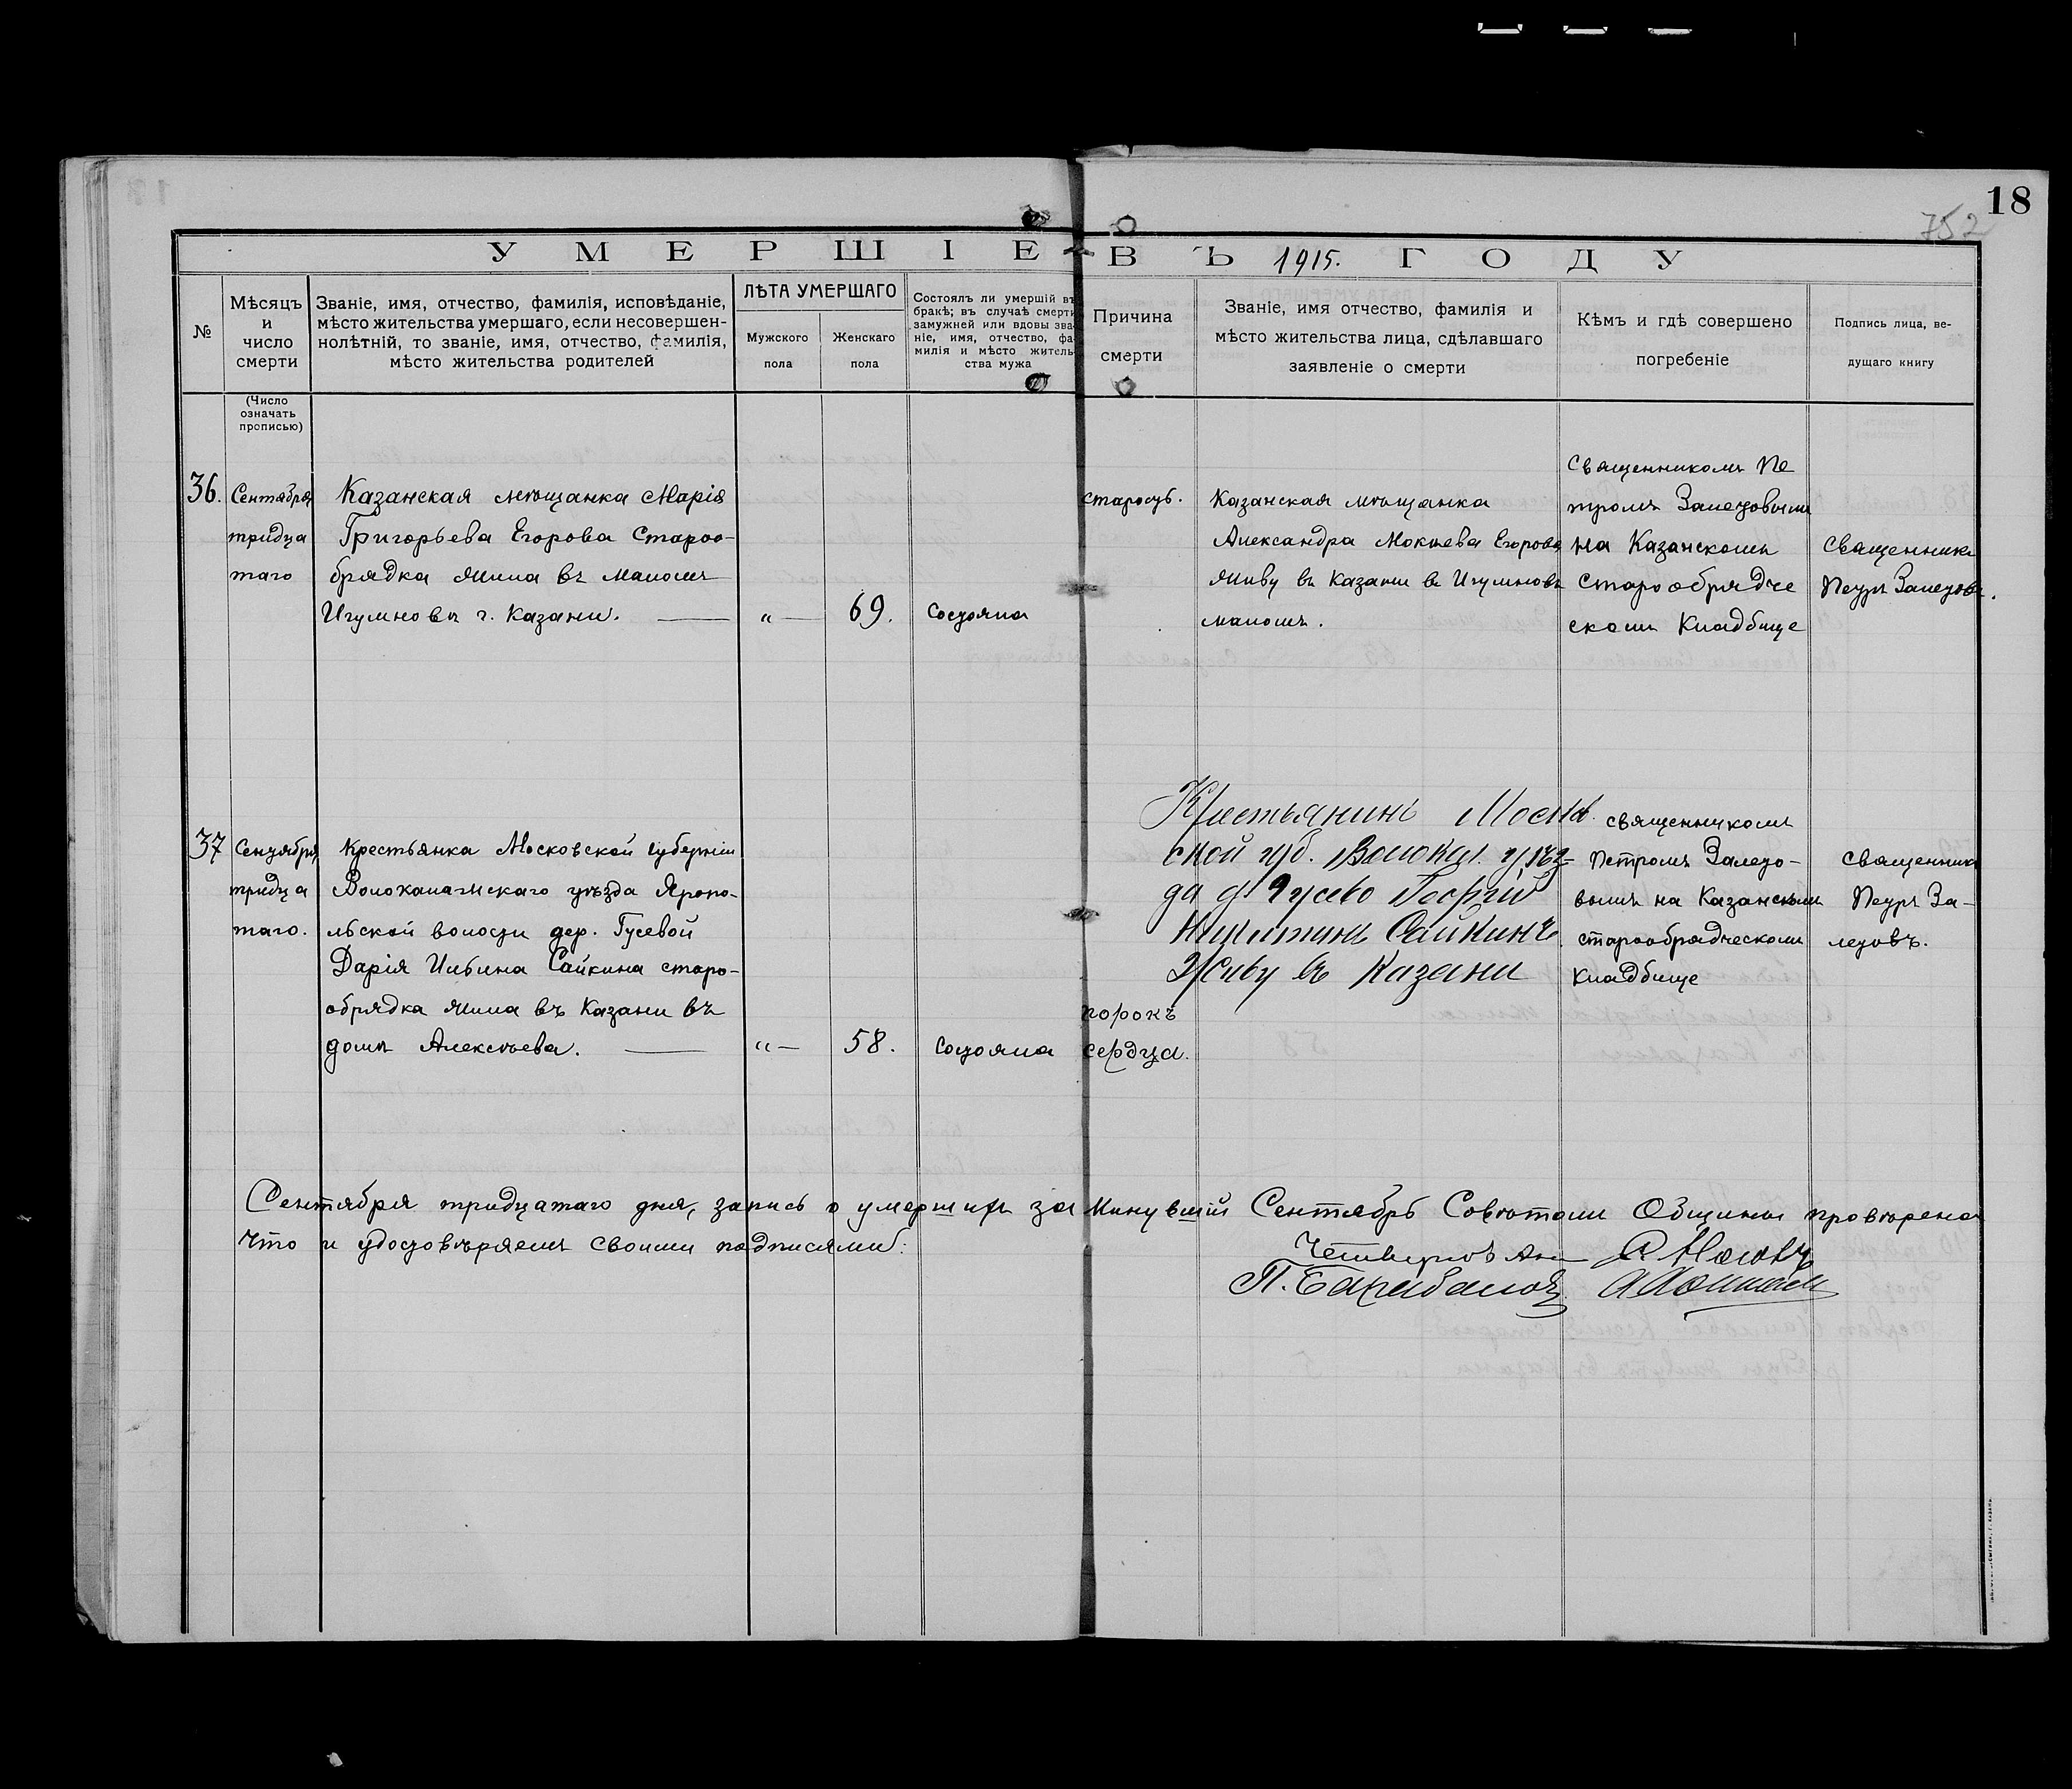 18
752
УМЕРШІЕ ВЪ 1915. ГОДУ
№
Мѣсяцъ
и
число
смерти
(Число
означать
прописью)
Званіе, имя, отчество, фамилія, исповѣданіе,
мѣсто жительства умершаго, если несовершен-
нолѣтній, то званіе, имя, отчество, фамилія,
мѣсто жительства родителей
ЛѢТА УМЕРШАГО
Мужского
пола
Женскаго
пола
Состоялъ ли умершій въ
бракѣ; въ случаѣ смерти
замужней или вдовы зва-
ніе, имя, отчество, фа-
милія и мѣсто житель-
ства мужа
Причина
смерти
Званіе, имя отчество, фамилія и
мѣсто жительства лица, сдѣлавшаго
заявленіе о смерти
Кѣмъ и гдѣ совершено
погребеніе
Подпись лица, ве-
дущаго книгу
36.
Сентября
тридца
таго
Казанская мѣщанка Марія
Григорьева Егорова Староо-
брядка жила въ маломъ
Игумновѣ г. Казани.
„ —
69.
Состояла
старость.
Казанская мѣщанка
Александра Егорова
живу въ Казани въ Игумновѣ
маломъ.
Священникомъ Пе
тромъ Залетовымъ
на Казанскомъ
старообрядче
скомъ кладбище
Священникъ
Петръ Залетовъ.
37
Сентября
тридца
таго.
Крестьянка Московской губерніи
Волоколамскаго уѣзда Яропо-
льской волости дер. Гусевой
Дарія Ильина Сайкина старо-
обрядка жила въ Казани въ
домѣ Алексѣева.
„ —
58.
Состояла
порокъ
сердца.
Крестьянинъ Москов.
ской губ. Волокол. уѣз-
да д Гусево Георгій
Никитинъ Сайкинъ.
Живу въ Казани
священникомъ
Петромъ Залето-
вымъ на Казанскомъ
старообрядческомъ
кладбище
Священникъ
Петръ За-
летовъ.
Сентября тридцатаго дня, запись о умершихъ за минувшій Сентябрь Совѣтомъ Общины провѣрена
что и удостовѣряемъ своими подписями: